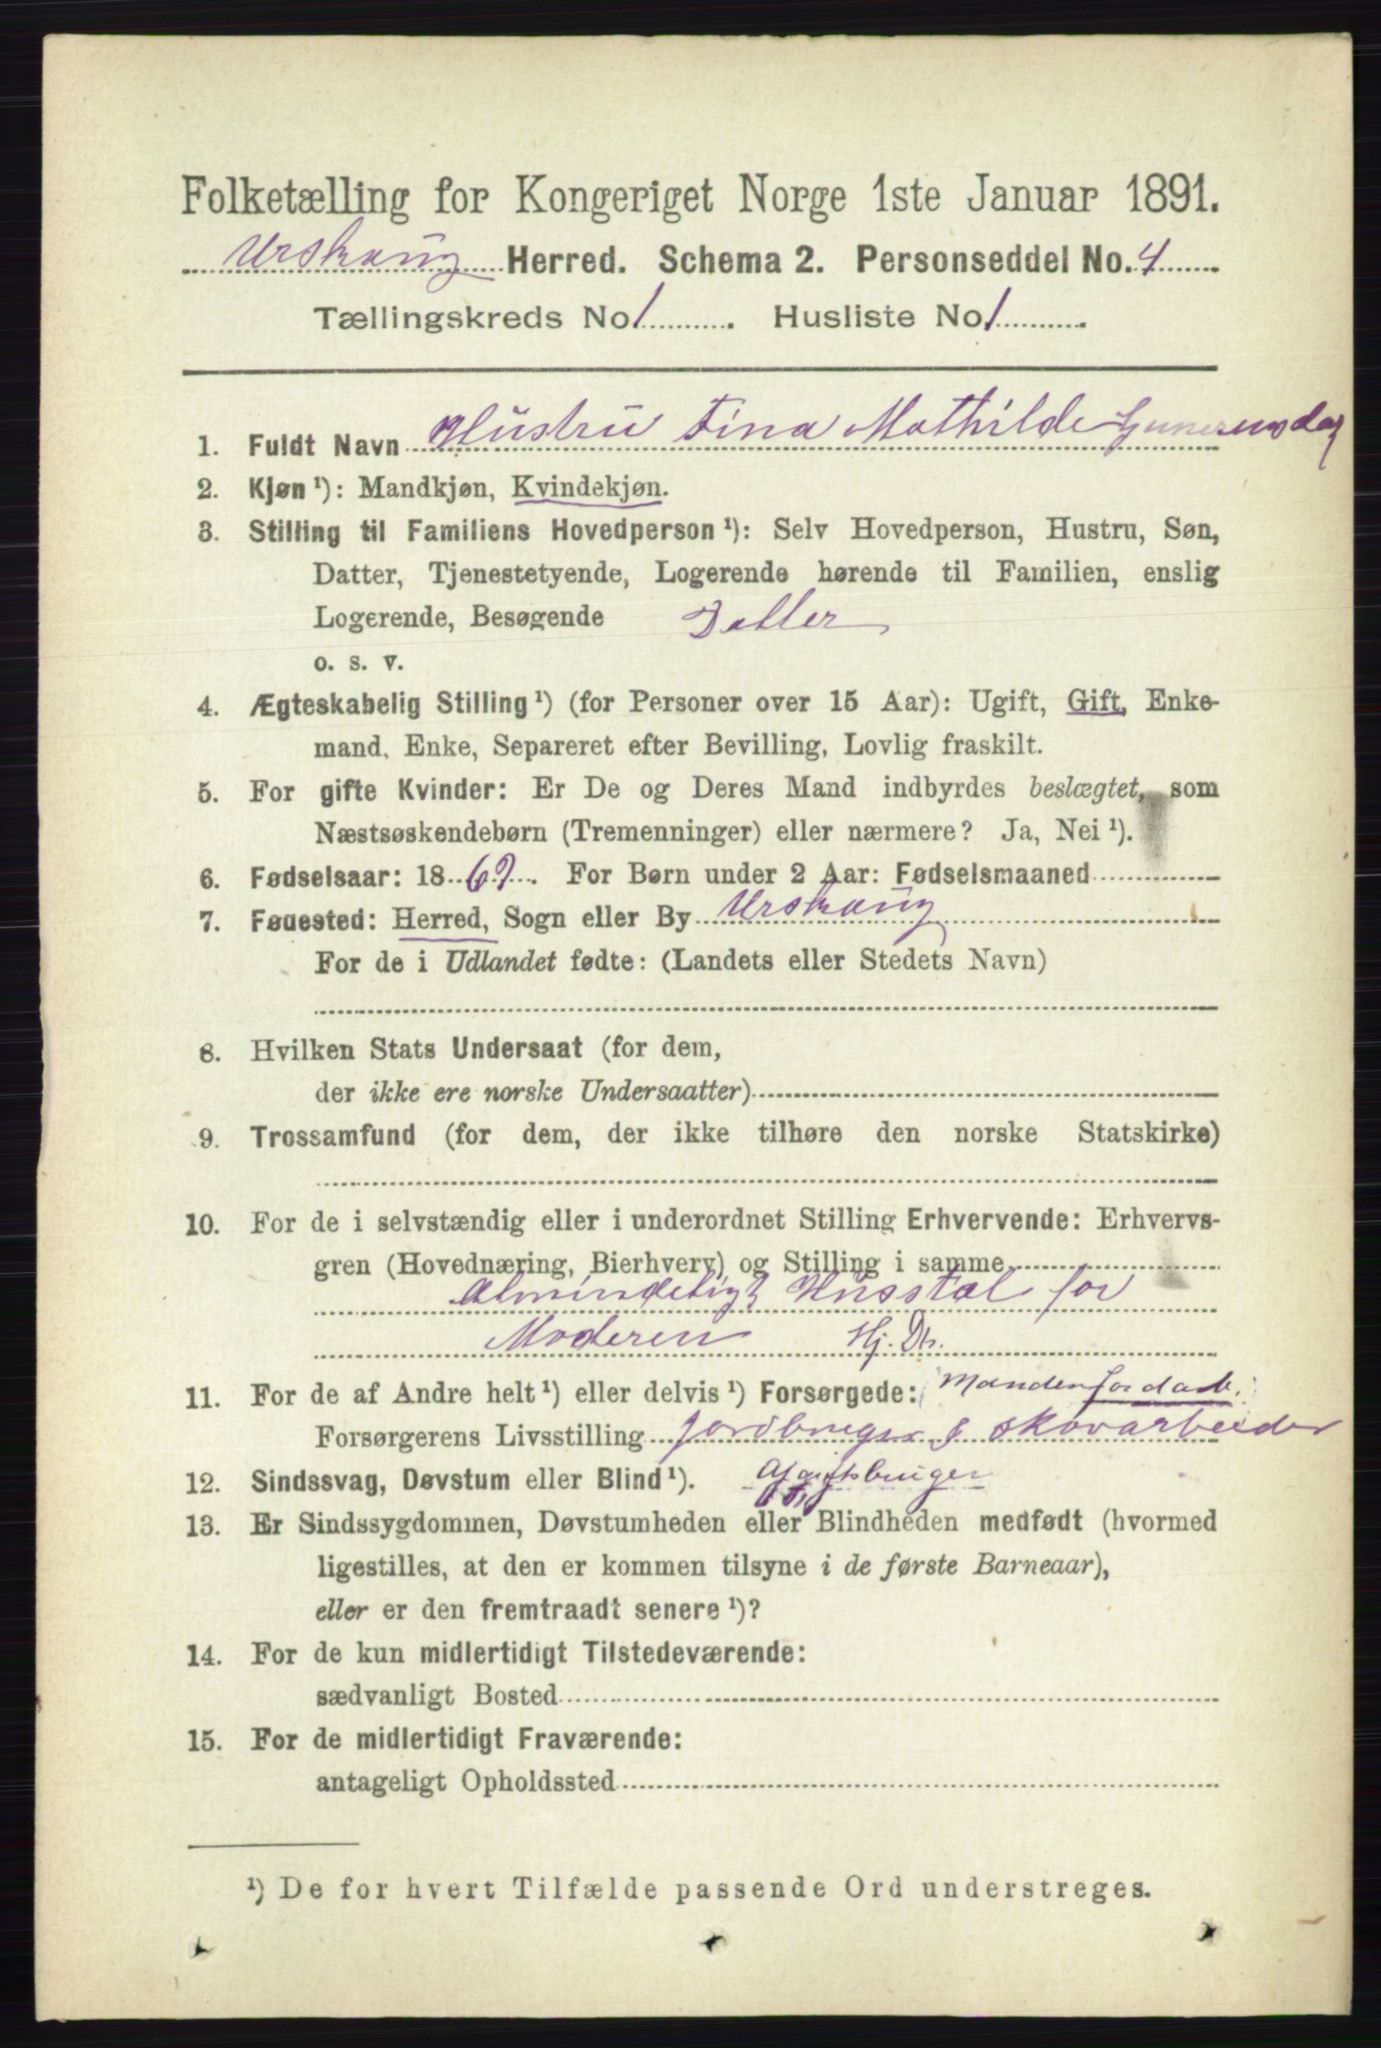 Folketælling for Kongeriget Norge 1ste Januar 1891.
Urskoug Herred. Schema 2. Personseddel No. 4
Tællingskreds No 1. Husliste No 1.
1. Fuldt Navn Hustru Tina Mathilde
2. Kjøn ¹): Mandkjøn, Kvindekjøn.
3. Stilling til Familiens Hovedperson ¹): Selv Hovedperson, Hustru, Søn,
Datter, Tjenestetyende, Logerende hørende til Familien, enslig
Logerende, Besøgende Datter
o. s. v.
4. Ægteskabelig Stilling ¹) (for Personer over 15 Aar): Ugift, Gift, Enke-
mand, Enke, Separeret efter Bevilling, Lovlig fraskilt.
5. For gifte Kvinder: Er De og Deres Mand indbyrdes beslægtet, som
Næstsøskendebørn (Tremenninger) eller nærmere? Ja, Nei ¹).
6. Fødselsaar: 18 69. For Børn under 2 Aar: Fødselsmaaned
7. Fødested: Herred, Sogn eller By Urskoug
For de i Udlandet fødte: (Landets eller Stedets Navn)
8. Hvilken Stats Undersaat (for dem,
der ikke ere norske Undersaatter)
9. Trossamfund (for dem, der ikke tilhøre den norske Statskirke)
10. For de i selvstændig eller i underordnet Stilling Erhvervende: Erhvervs-
gren (Hovednæring, Bierhverv) og Stilling i samme
Almindeligt Husstel for
Moderen Hj. Dtr.
11. For de af Andre helt ¹) eller delvis ¹) Forsørgede: Manden Jordarb.
Forsørgerens Livsstilling Jordbruger & Skovarbeider
12. Sindssvag, Døvstum eller Blind ¹). Afgiftsbruger
13. Er Sindssygdommen, Døvstumheden eller Blindheden medfødt (hvormed
ligestilles, at den er kommen tilsyne i de første Barneaar),
eller er den fremtraadt senere ¹)?
14. For de kun midlertidigt Tilstedeværende:
sædvanligt Bosted
15. For de midlertidigt Fraværende:
antageligt Opholdssted
¹) De for hvert Tilfælde passende Ord understreges.